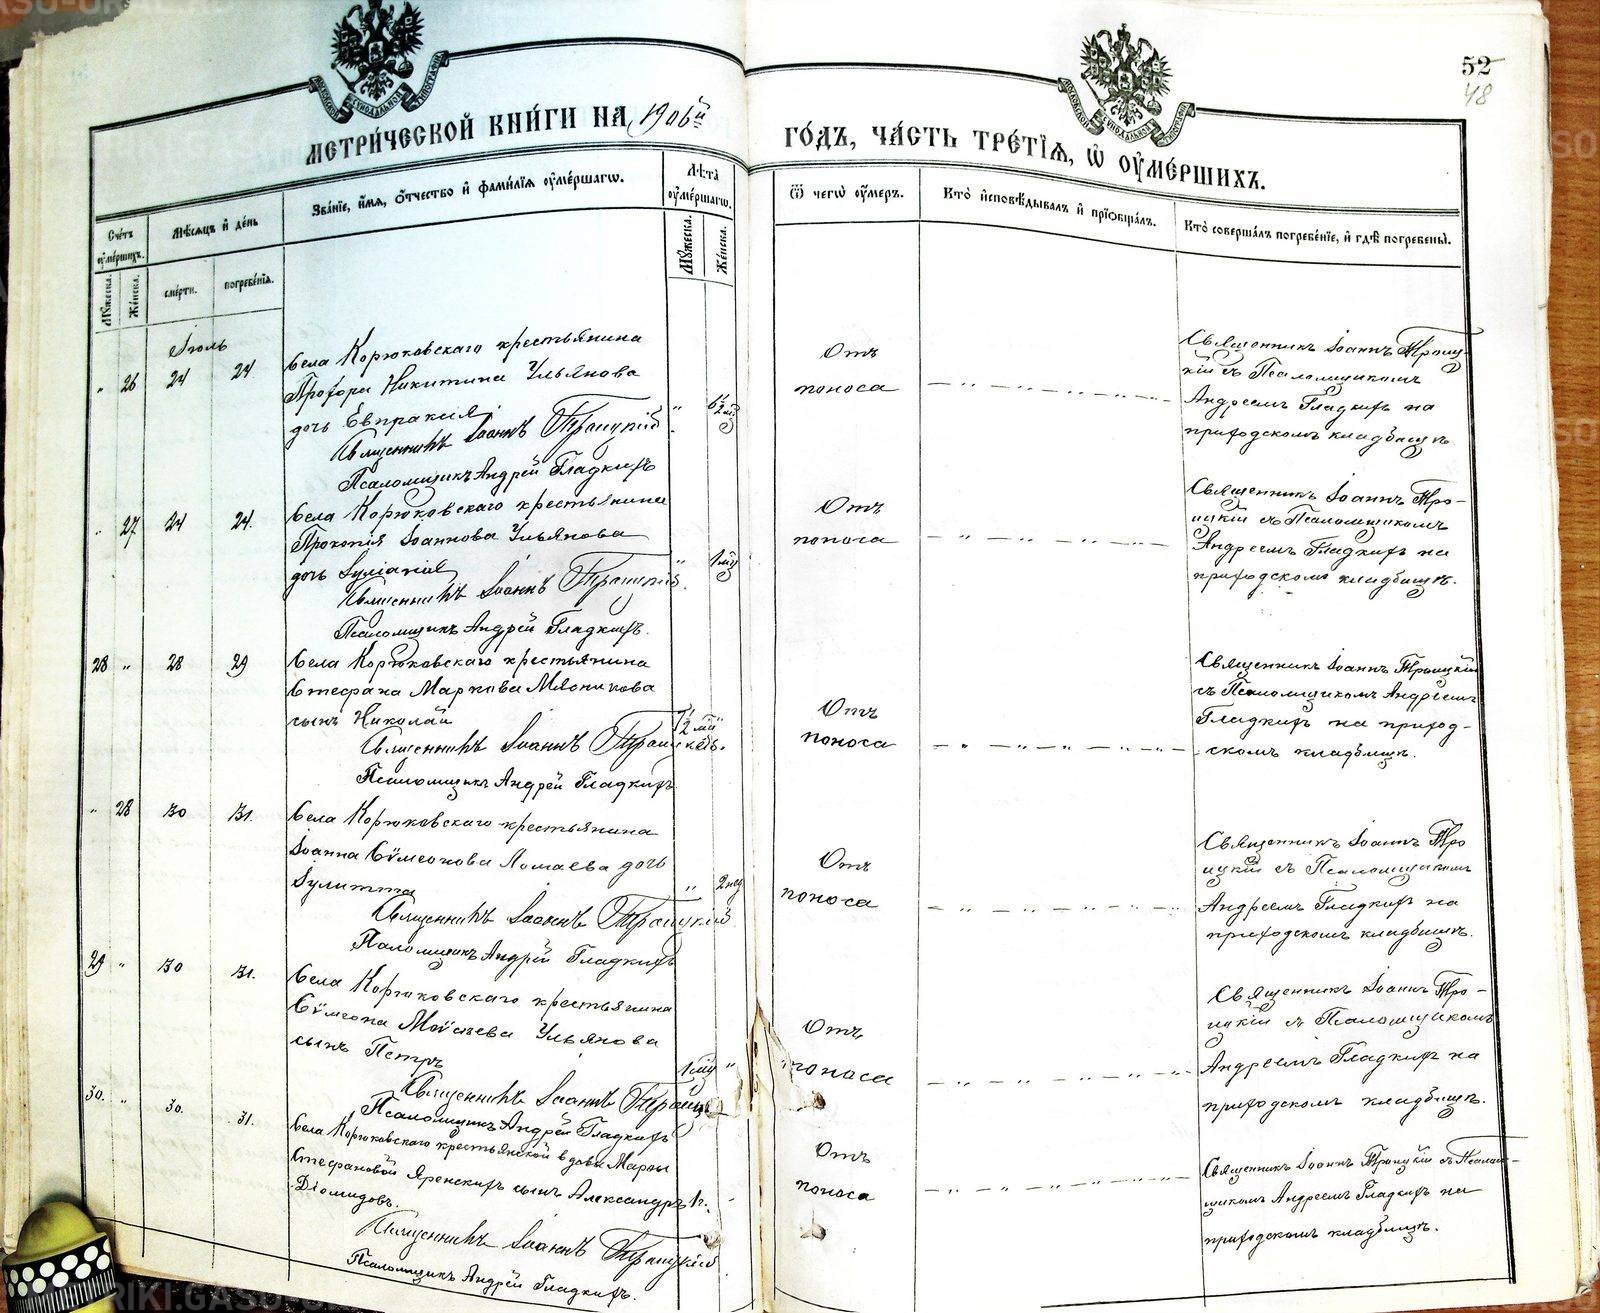 52
48
МЕТРИ́ЧЕСКОЙ КНИ́ГИ НА 1906й
ГО́ДЪ, ЧА́СТЬ ТРЕ́ТІѦ, Ѡ҆ ОУ҆МЕ́РШИХЪ.
Сче́тъ оу҆ме́ршихъ.
Мꙋ́жеска.
Же́нска.
Мѣ́сѧцъ и҆ де́нь
сме́рти.
погребе́нїѧ.
Зва́нїе, и҆́мѧ, ѻ҆́тчество и҆ фами́лїѧ оу҆ме́ршагѡ.
Лѣ́та оу҆ме́ршагѡ.
Мꙋ́жеска.
Же́нска.
Ѿ чегѡ̀ оу҆́меръ.
Кто̀ и҆сповѣ́дывалъ и҆ прїѡбща́лъ.
Кто̀ соверша́лъ погребе́нїе, и҆ гдѣ̀ погребены̀.
Іюль
„ 26 24 24
Села Корюковскаго крестьянина
Прохора Никитина Ульянова
дочь Евпраксія
Священникъ Іоаннъ Троицкій
Псаломщикъ Андрей Гладкихъ
Отъ
поноса
Священникъ Іоаннъ Троиц-
кій съ Псаломщикомъ
Андреемъ Гладкихъ на
приходскомъ кладбищѣ.
„ 27 24 24.
Села Корюковскаго крестьянина
Прокопія Іоаннова Ульянова
дочь Іуліанія
„ 1 мѣ
Священникъ Іоаннъ Троицкій.
Псаломщикъ Андрей Гладкихъ.
Отъ
поноса
Священникъ Іоаннъ Тро-
ицкій съ Псаломщикомъ
Андреемъ Гладкихъ на
приходскомъ кладбищѣ.
28 „ 28 29
Села Корюковскаго крестьянина
Стефана Маркова Мясникова
сынъ Николай
Священникъ Іоаннъ Троицкій.
Псаломщикъ Андрей Гладкихъ
Отъ
поноса
Священникъ Іоаннъ Троицкій
съ Псаломщикомъ Андреемъ
Гладкихъ на приход-
скомъ кладбищѣ.
„ 28 30 31.
Села Корюковскаго крестьянина
Іоанна Сѵмеонова Ломаева дочь
Іулитта
„ 2 нед
Священникъ Іоаннъ Троицкій
Псаломщикъ Андрей Гладкихъ
Отъ
поноса
Священникъ Іоаннъ Тро
ицкій съ Псаломщикомъ
Андреемъ Гладкихъ на
приходскомъ кладбищѣ.
29 „ 30 31.
Села Корюковскаго крестьянина
Сѵмеона Моѵсеева Ульянова
сынъ Петръ
1 мѣ „
Священникъ Іоаннъ Троицкій
Псаломщикъ Андрей Гладкихъ
Отъ
поноса
Священникъ Іоаннъ Тро-
ицкій съ Псаломщикомъ
Андреемъ Гладкихъ на
приходскомъ кладбищѣ.
30. „ 30. 31.
Села Корюковскаго крестьянской вдовы Марѳы
Стефановой Яренскихъ сынъ Александръ
Діомидовъ.
Священникъ Іоаннъ Троицкій
Псаломщикъ Андрей Гладкихъ.
Отъ
поноса
Священникъ Іоаннъ Троицкій съ Псалом-
щикомъ Андреемъ Гладкихъ на
приходскомъ кладбищѣ.